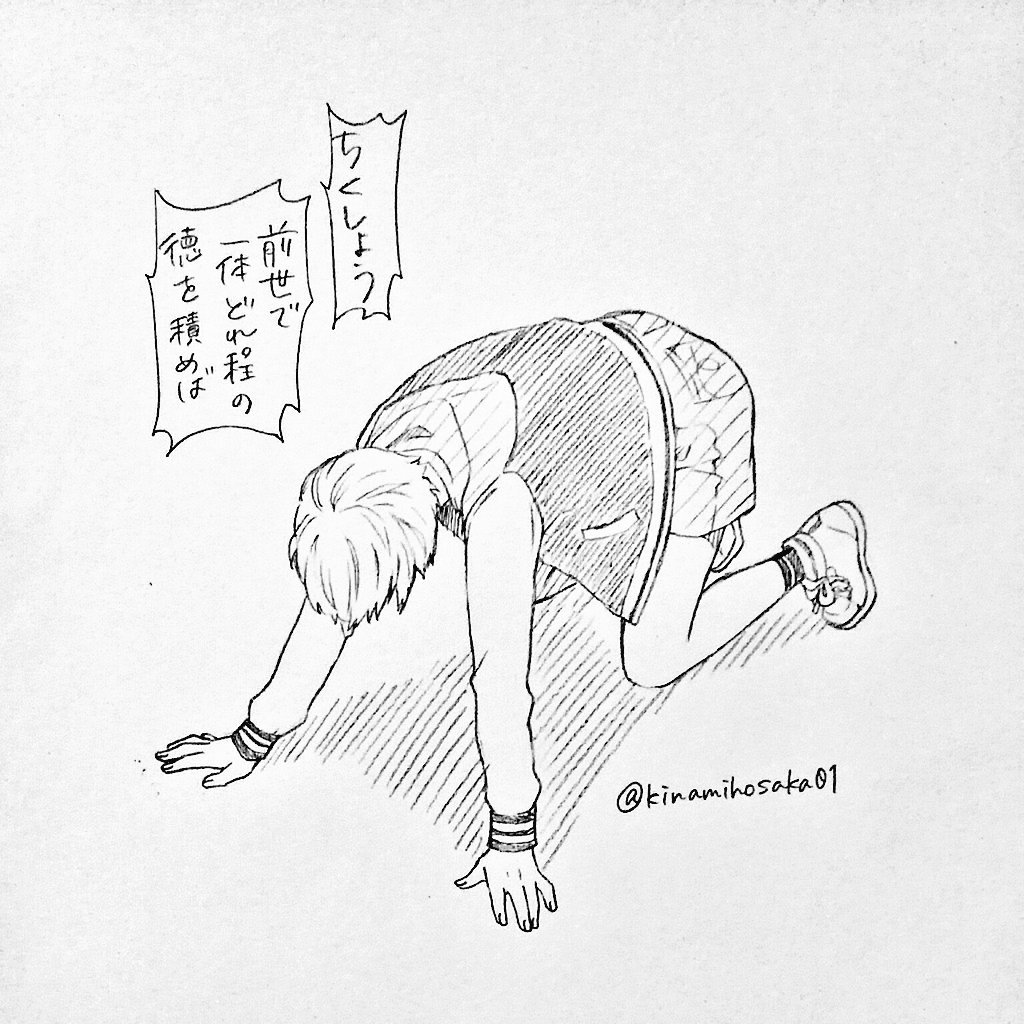 ちくしょう
前世で
一体どれ程の
徳を積めば
@kinamihosaka01